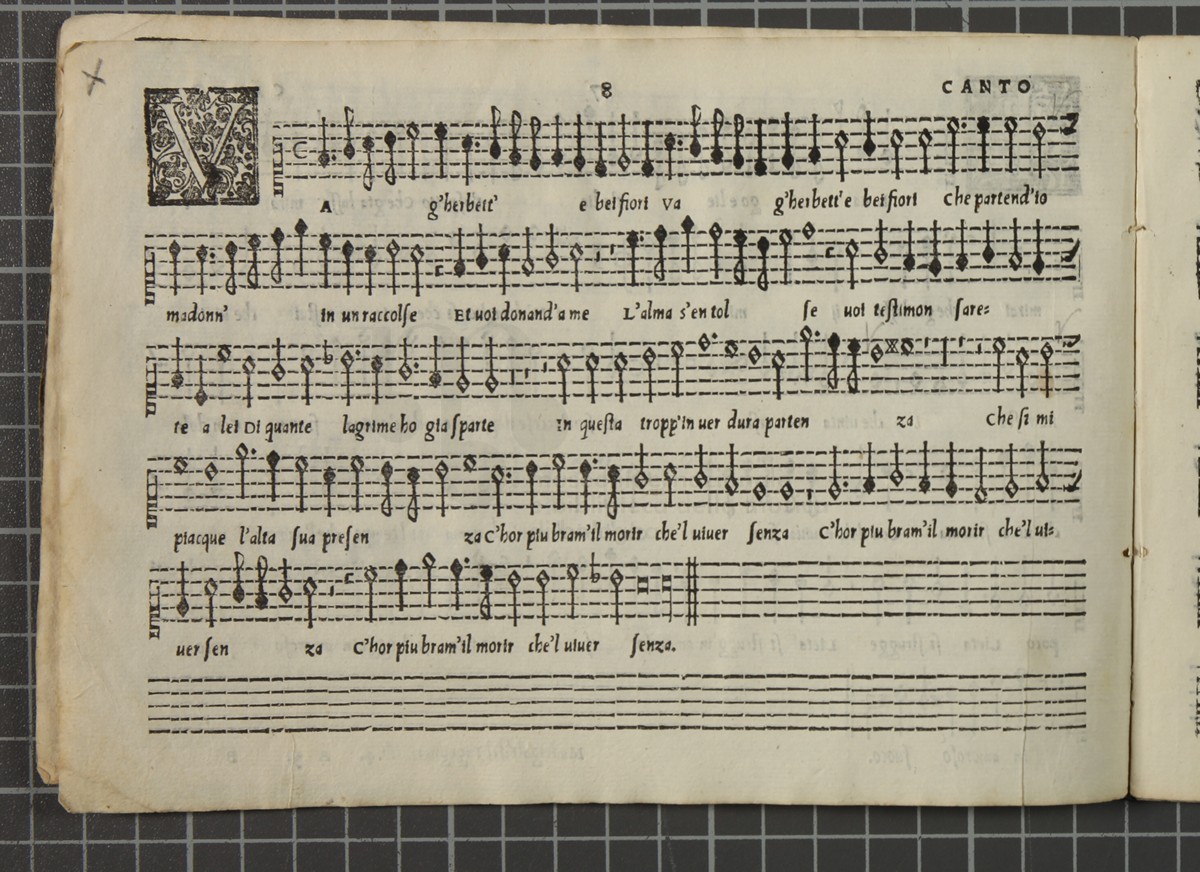 8 CANTO
V A g'herbett' e bei fiori Va g'herbett' e bei fiori Che partend'io
madonn' in un raccolse Et uoi donand'a me L'alma s'en tol se uoi testimon sare=
te a lei Di quante lagrime ho gia sparte In questa tropp'in uer dura parten za Che si mi
piacque l'alta sua presen za C'hor piu bram'il morir che'l uiuer senza C'hor piu bram'il morir che'l ui=
uer sen za C'hor piu bram'il morir che'l uiuer senza.